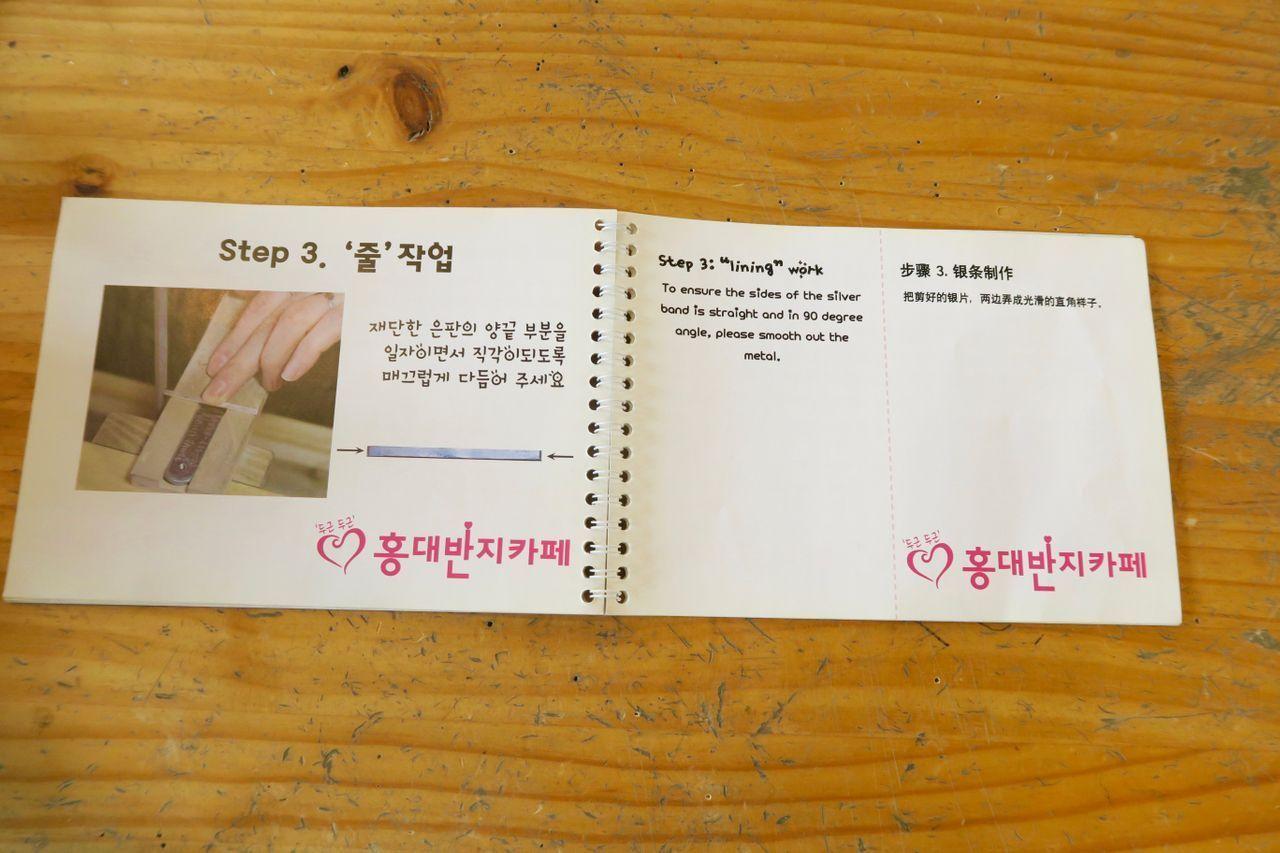 Step 3. ‘줄’ 작업
재단한 은판의 양끝 부분을
일자이면서 직각이되도록
매끄럽게 다듬어 주세요
'두근 두근'
홍대반지카페
Step 3: “lining” work
To ensure the sides of the silver
band is straight and in 90 degree
angle, please smooth out the
metal.
步骤 3. 银条制作
把剪好的银片，两边弄成光滑的直角样子。
'두근 두근'
홍대반지카페